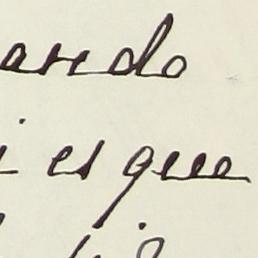 aredo
i es que